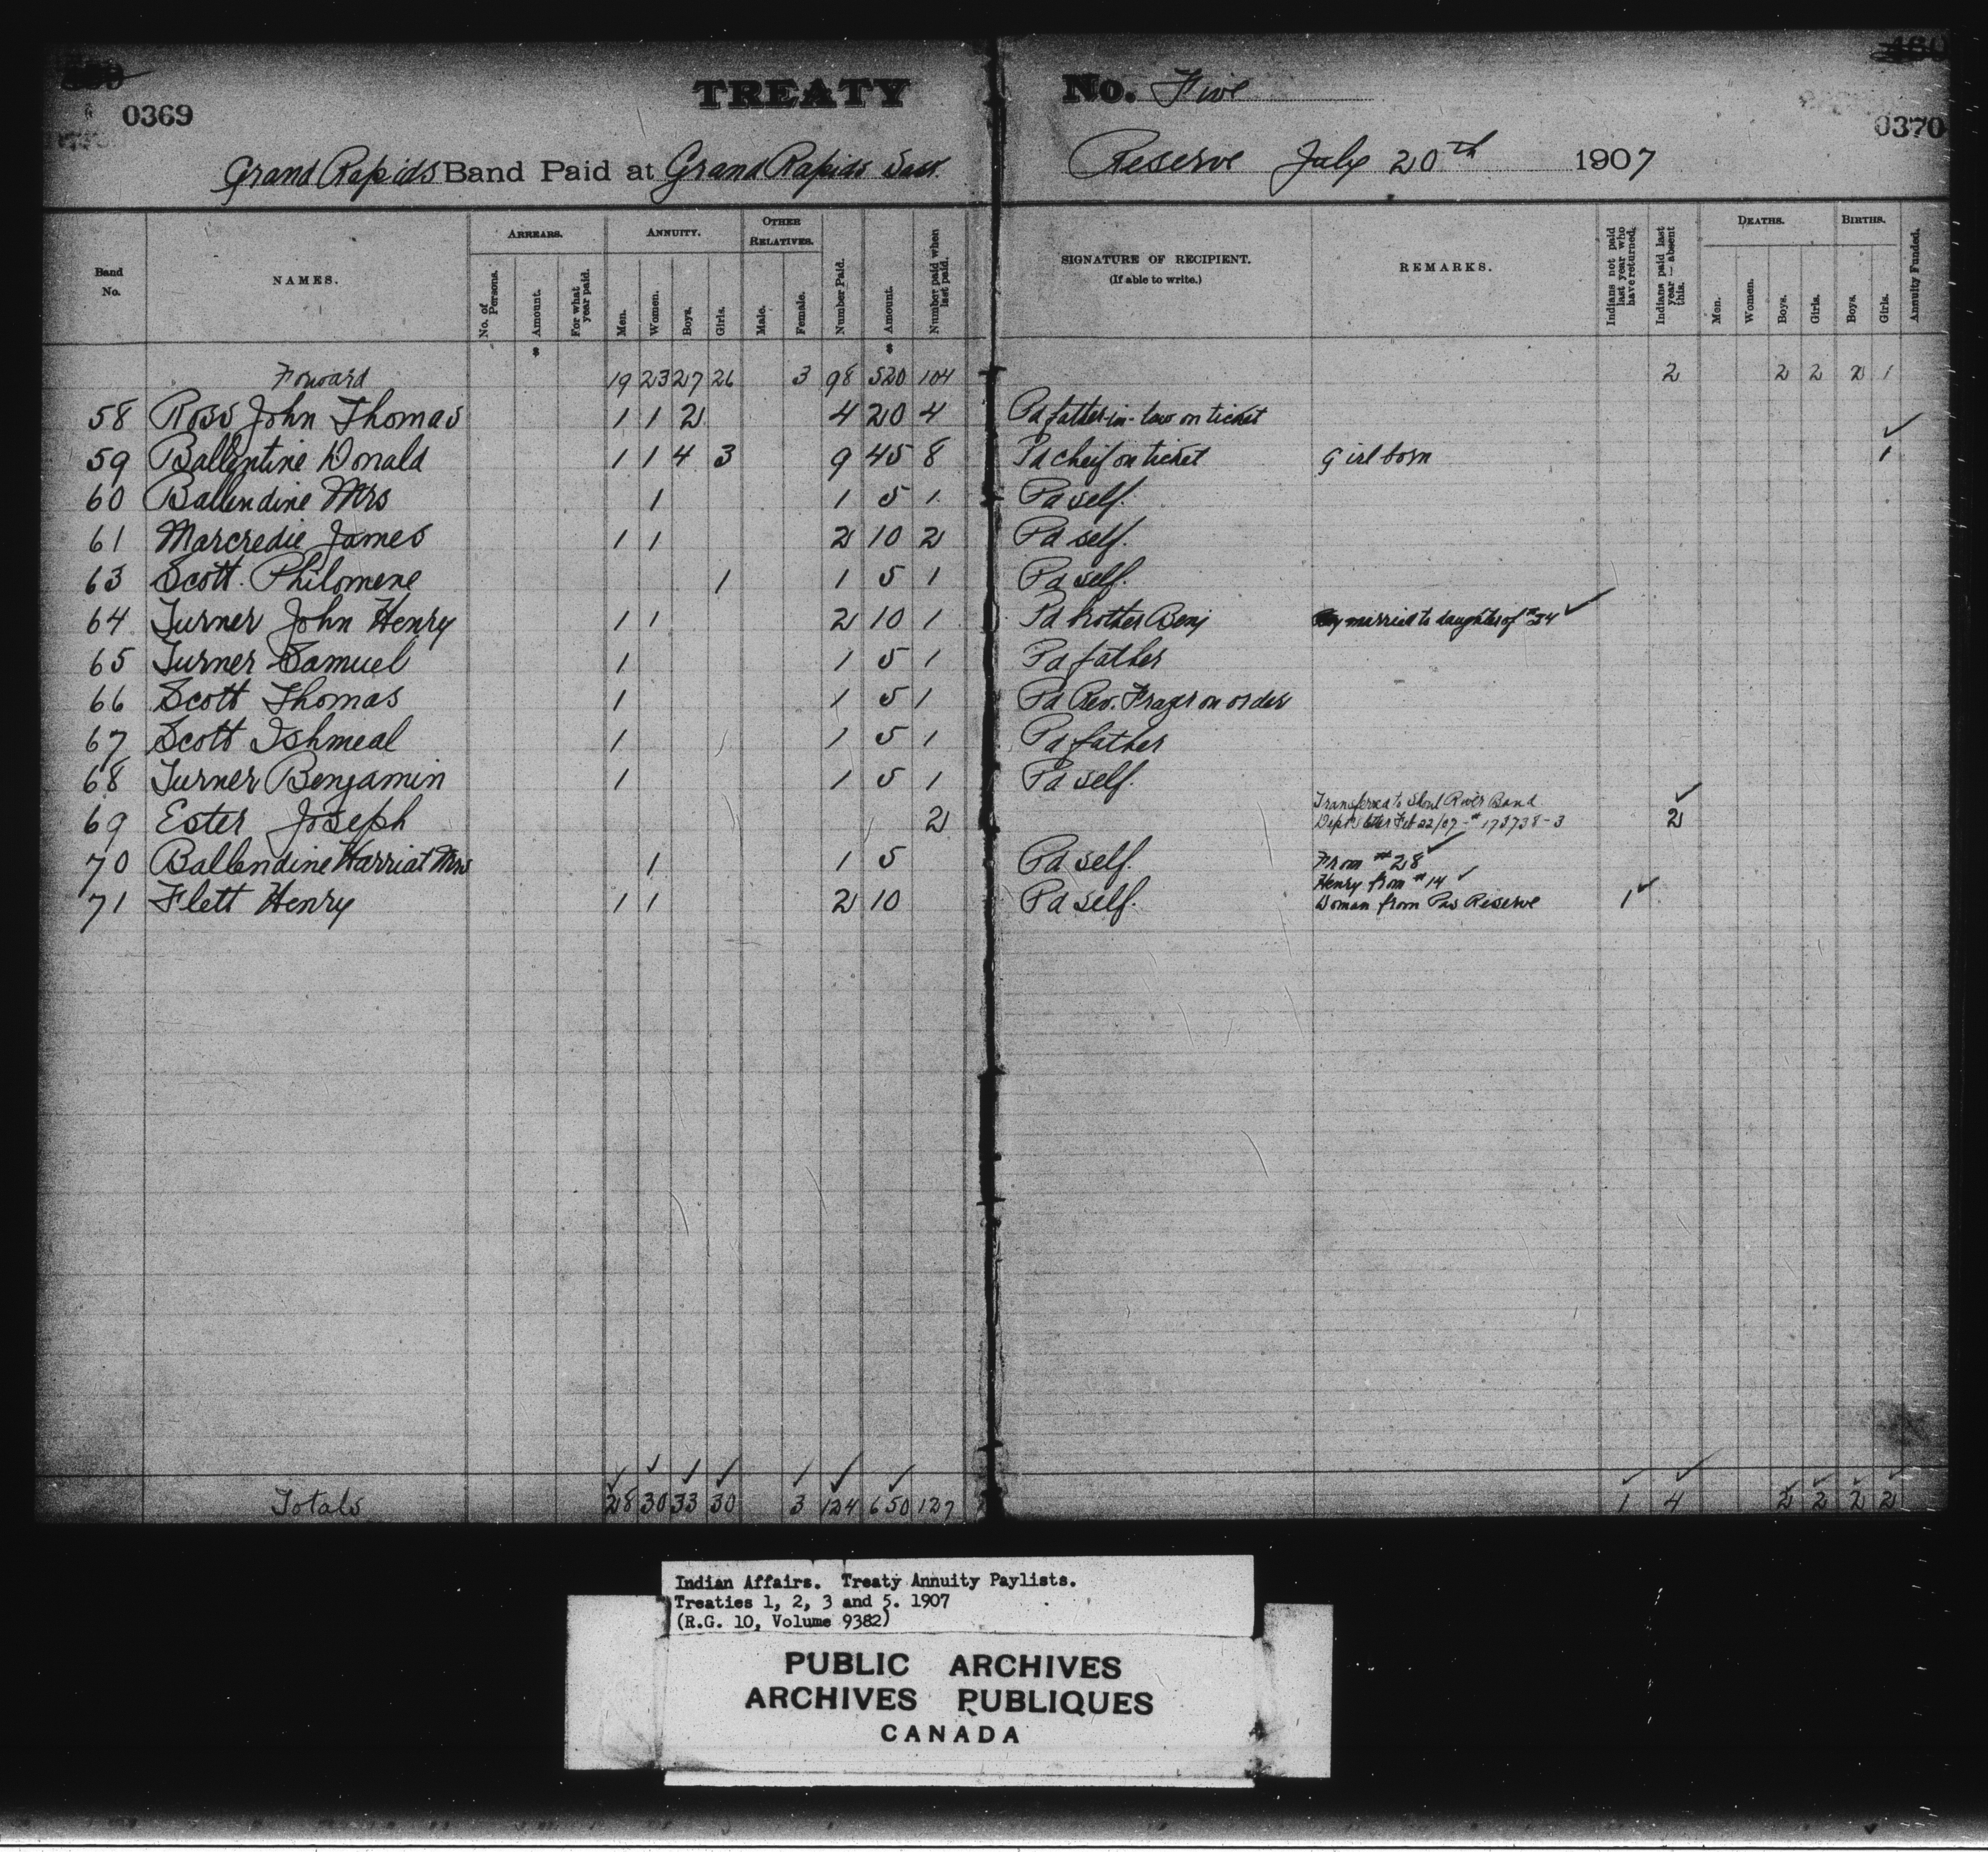 0369
TREATY No. Five
0370
Grand Rapids Band Paid at Grand Rapids Sask. Reserve July 20th 1907
Band No. NAMES. ARREARS. No. of Persons. Amount. For what year paid. ANNUITY. Men. Women. Boys. Girls. OTHER RELATIVES. Male. Female. Number Paid. Amount. Number paid when last paid. SIGNATURE OF RECIPIENT. (If able to write.) REMARKS. Indians not paid last year who have returned. Indians paid last year — absent this. DEATHS. Men. Women. Boys. Girls. BIRTHS. Boys. Girls. Annuity Funded.
$ $
Forward 19 23 27 26 3 98 520 104 2 2 2 2 1
58 Ross John Thomas 1 1 2 4 20 4 Pd father-in-law on ticket
59 Ballentine Donald 1 1 4 3 9 45 8 Pd cheif on ticket Girl born 1
60 Ballendine Mrs 1 1 5 1 Pd self.
61 Marcredie James 1 1 2 10 2 Pd self.
63 Scott Philomene 1 1 5 1 Pd self.
64 Turner John Henry 1 1 2 10 1 Pd brother Benj married to daughter of #34
65 Turner Samuel 1 1 5 1 Pd father
66 Scott Thomas 1 1 5 1 Pd Rev. Frazer on order
67 Scott Ishmeal 1 1 5 1 Pd father
68 Turner Benjamin 1 1 5 1 Pd self.
Transferred to Shoal River Band
69 Ester Joseph 2 Dept letter Feb 22/07 - # 173738-3 2
70 Ballendine Harriat Mrs 1 1 5 Pd self. From #28
Henry from #14
71 Flett Henry 1 1 2 10 Pd self. Woman from Pas Reserve 1
Totals 28 30 33 30 3 124 650 127 1 4 2 2 2 2
Indian Affairs. Treaty Annuity Paylists.
Treaties 1, 2, 3 and 5. 1907
(R.G. 10, Volume 9382)
PUBLIC ARCHIVES
ARCHIVES PUBLIQUES
CANADA